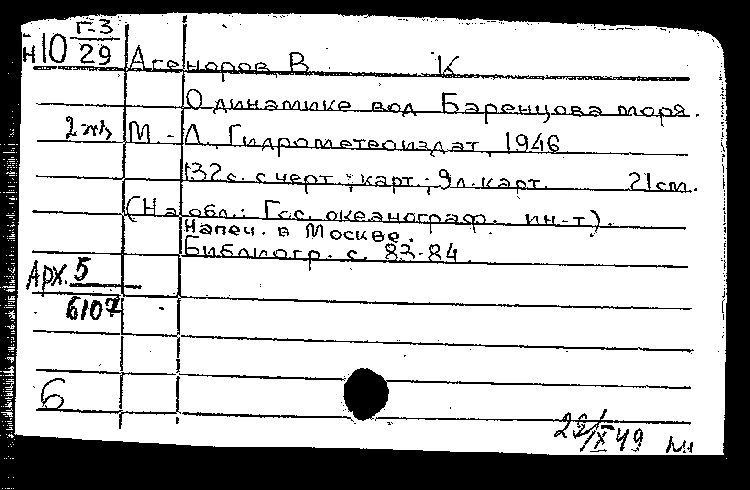 Г-3
Н10 29
Агеноров, В. К
О динамике вод Баренцова моря.
2 экз М. - Л., Гидрометеоиздат, 1946
132 с. с черт.; карт.; 9 л. карт. 21 см.
(На обл.: Гос. океанограф. ин-т).
Напеч. в Москве.
Библиогр. с. 83-84.
Арх. 5
6107
6
/X 49